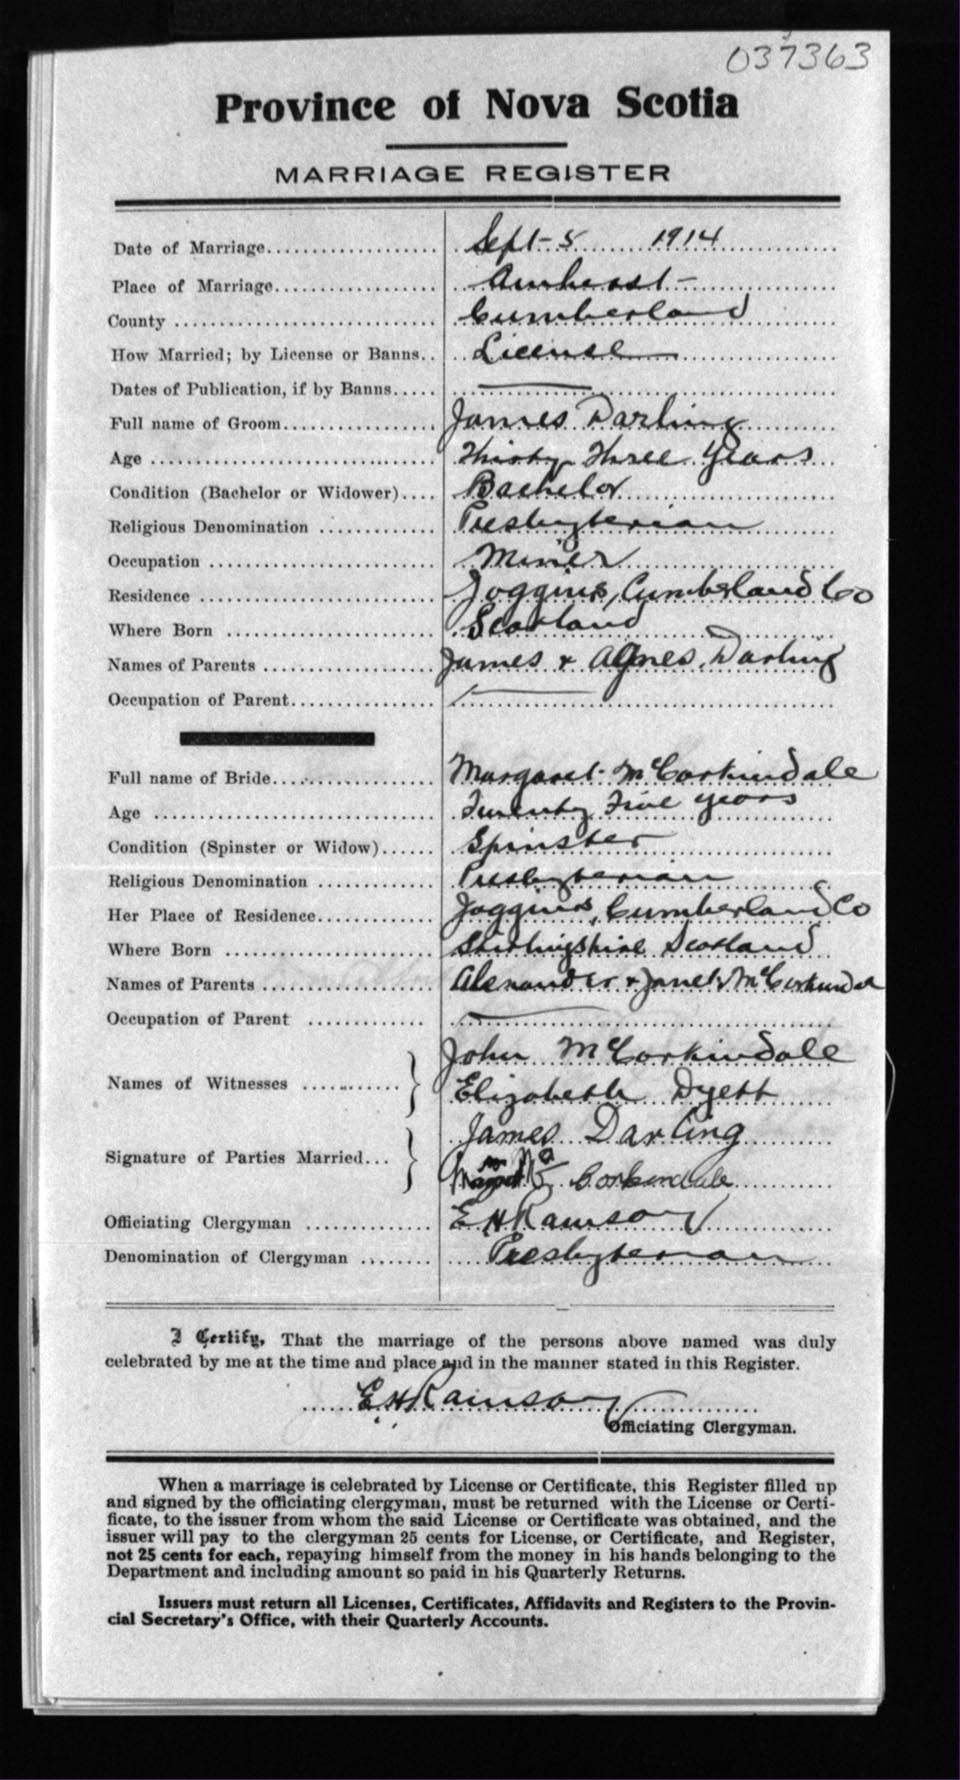 037363
Province of Nova Scotia
MARRIAGE REGISTER
Date of Marriage Sept - 5 1914
Place of Marriage Amherst -
County Cumberland
How Married; by License or Banns License
Dates of Publication, if by Banns
Full name of Groom James Darling
Age Thirty Three years
Condition (Bachelor or Widower) Bachelor
Religious Denomination Presbyterian
Occupation Miner
Residence Joggins, Cumberland Co
Where Born Scotland
Names of Parents James + Agnes Darling
Occupation of Parent
Full name of Bride Margaret McCorkindale
Age Twenty Five years
Condition (Spinster or Widow) Spinster
Religious Denomination Presbyterian
Her Place of Residence Joggins, Cumberland Co
Where Born Stirlingshire Scotland
Names of Parents Alexander + Janet McCorkindale
Occupation of Parent
Names of Witnesses John McCorkindale
Elizabeth Dyett
Signature of Parties Married James Darling
Corkindale
Officiating Clergyman E H Ramsay
Denomination of Clergyman Presbyterian
I Certify, That the marriage of the persons above named was duly
celebrated by me at the time and place and in the manner stated in this Register.
E H Ramsay
Officiating Clergyman.
When a marriage is celebrated by License or Certificate, this Register filled up
and signed by the officiating clergyman, must be returned with the License or Certi-
ficate, to the issuer from whom the said License or Certificate was obtained, and the
issuer will pay to the clergyman 25 cents for License, or Certificate, and Register,
not 25 cents for each, repaying himself from the money in his hands belonging to the
Department and including amount so paid in his Quarterly Returns.
Issuers must return all Licenses, Certificates, Affidavits and Registers to the Provin-
cial Secretary's Office, with their Quarterly Accounts.